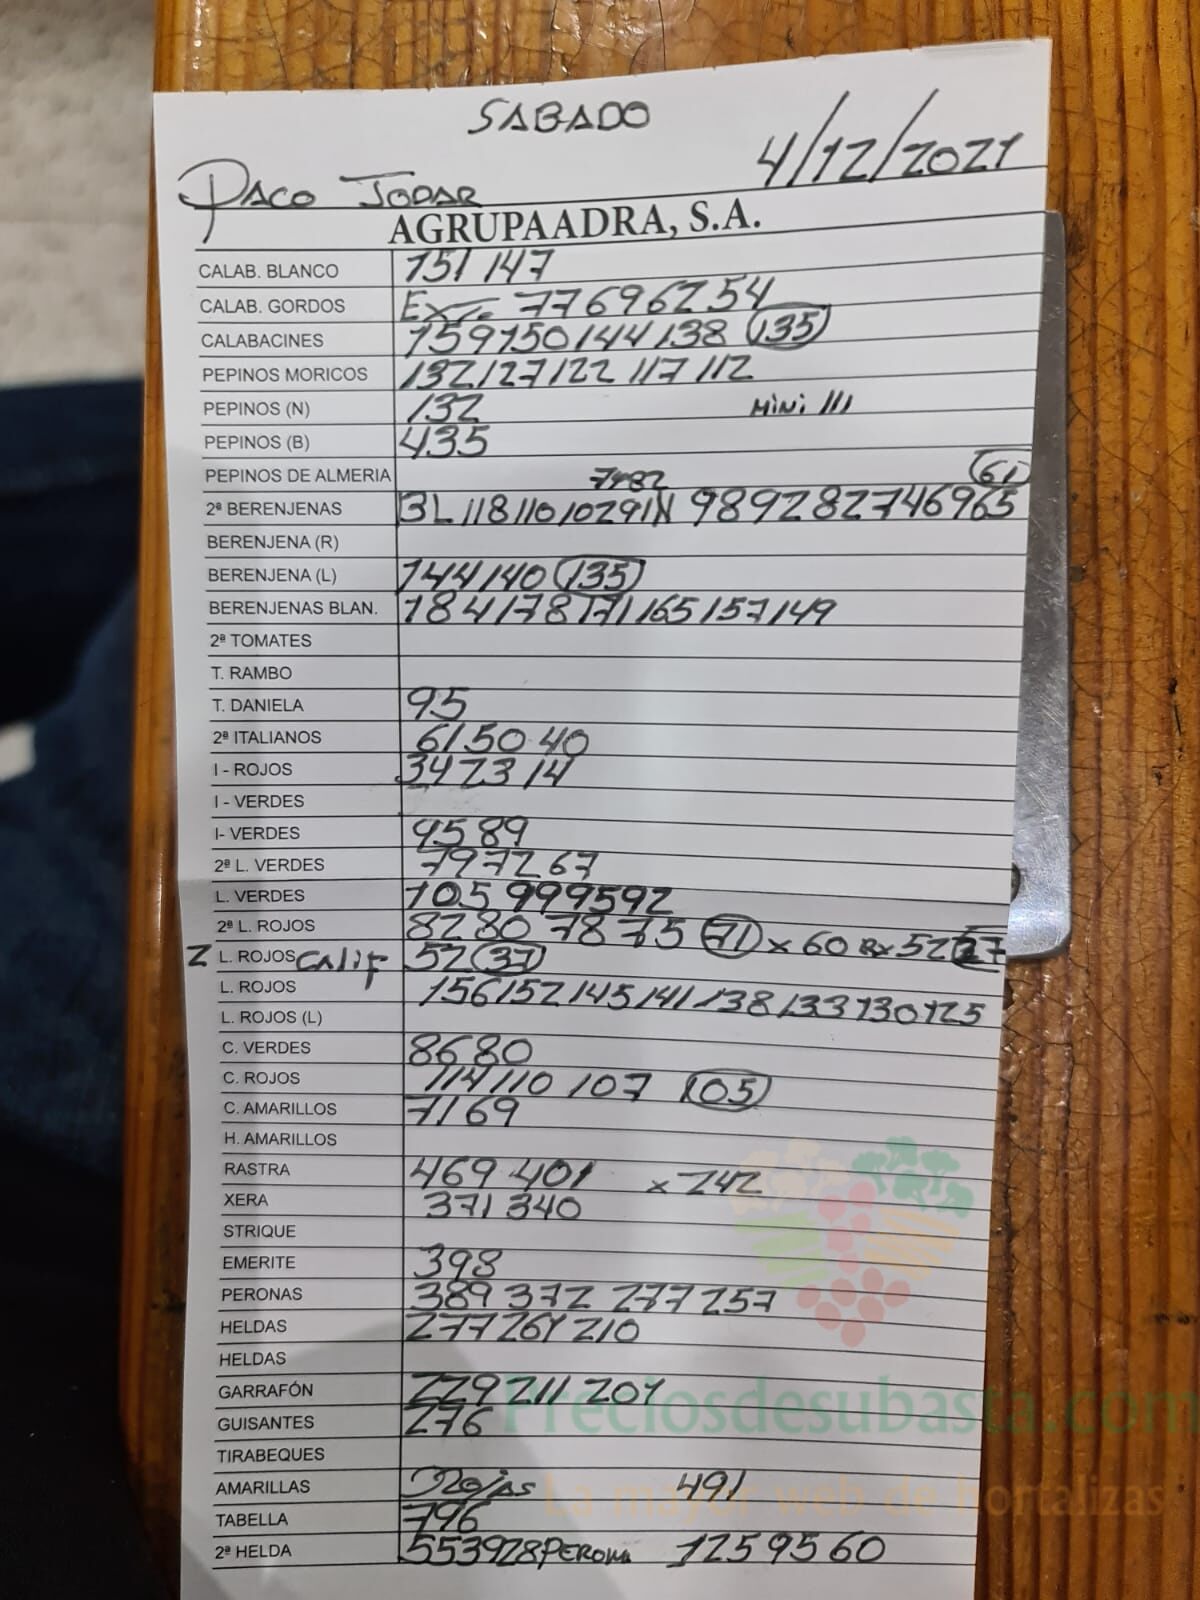 SABADO
4/12/2021
PACO JODAR
AGRUPAADRA, S.A.
CALAB. BLANCO 151 147
CALAB. GORDOS Ext. 77 69 62 54
CALABACINES 159 150 144 138 135
PEPINOS MORICOS 132 127 122 117 112
PEPINOS (N) 132 Mini 111
PEPINOS (B) 435
PEPINOS DE ALMERIA
61
2ª BERENJENAS 118 110 102 91 N 98 92 82 74 69 65
BERENJENA (R)
BERENJENA (L) 144 140 135
BERENJENAS BLAN. 184 178 171 165 157 149
2ª TOMATES
T. RAMBO
T. DANIELA 95
2ª ITALIANOS 61 50 40
I - ROJOS 34 23 14
I - VERDES
I- VERDES 95 89
2ª L. VERDES 79 72 67
L. VERDES 105 99 99 59 2
2ª L. ROJOS 82 80 78 75 71 x 60 Rx 52 27
2 L. ROJOS CALIF 52 37
L. ROJOS 156 152 145 141 138 133 130 125
L. ROJOS (L)
C. VERDES 86 80
C. ROJOS 114 110 107 105
C. AMARILLOS 71 69
H. AMARILLOS
RASTRA 469 401 x 242
XERA 371 340
STRIQUE
EMERITE 398
PERONAS 389 372 277 257
HELDAS 277 261 210
HELDAS
GARRAFÓN 229 211 201
GUISANTES 276
TIRABEQUES
AMARILLAS Rojas 491
TABELLA 796
2ª HELDA 55 39 28 PERONA 125 95 60
Preciosdesubasta.com
La mayor web de hortalizas